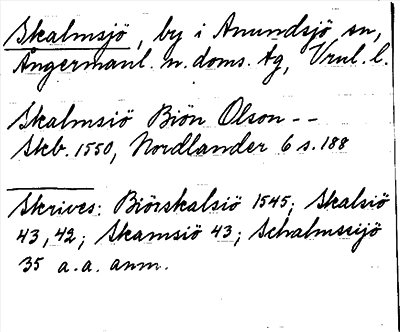 Skalmsjö, by i Anundsjö sn,
Ångermanl. n. doms. tg, Vrnl. l.
Skalmsiö Biön Olson --
Skb. 1550, Nordlander 6 s. 188
Skrives: Biörskalsiö 1545; Skalsiö
43, 42; Skamsiö 43; Schalmssijö
35 a.a. anm.